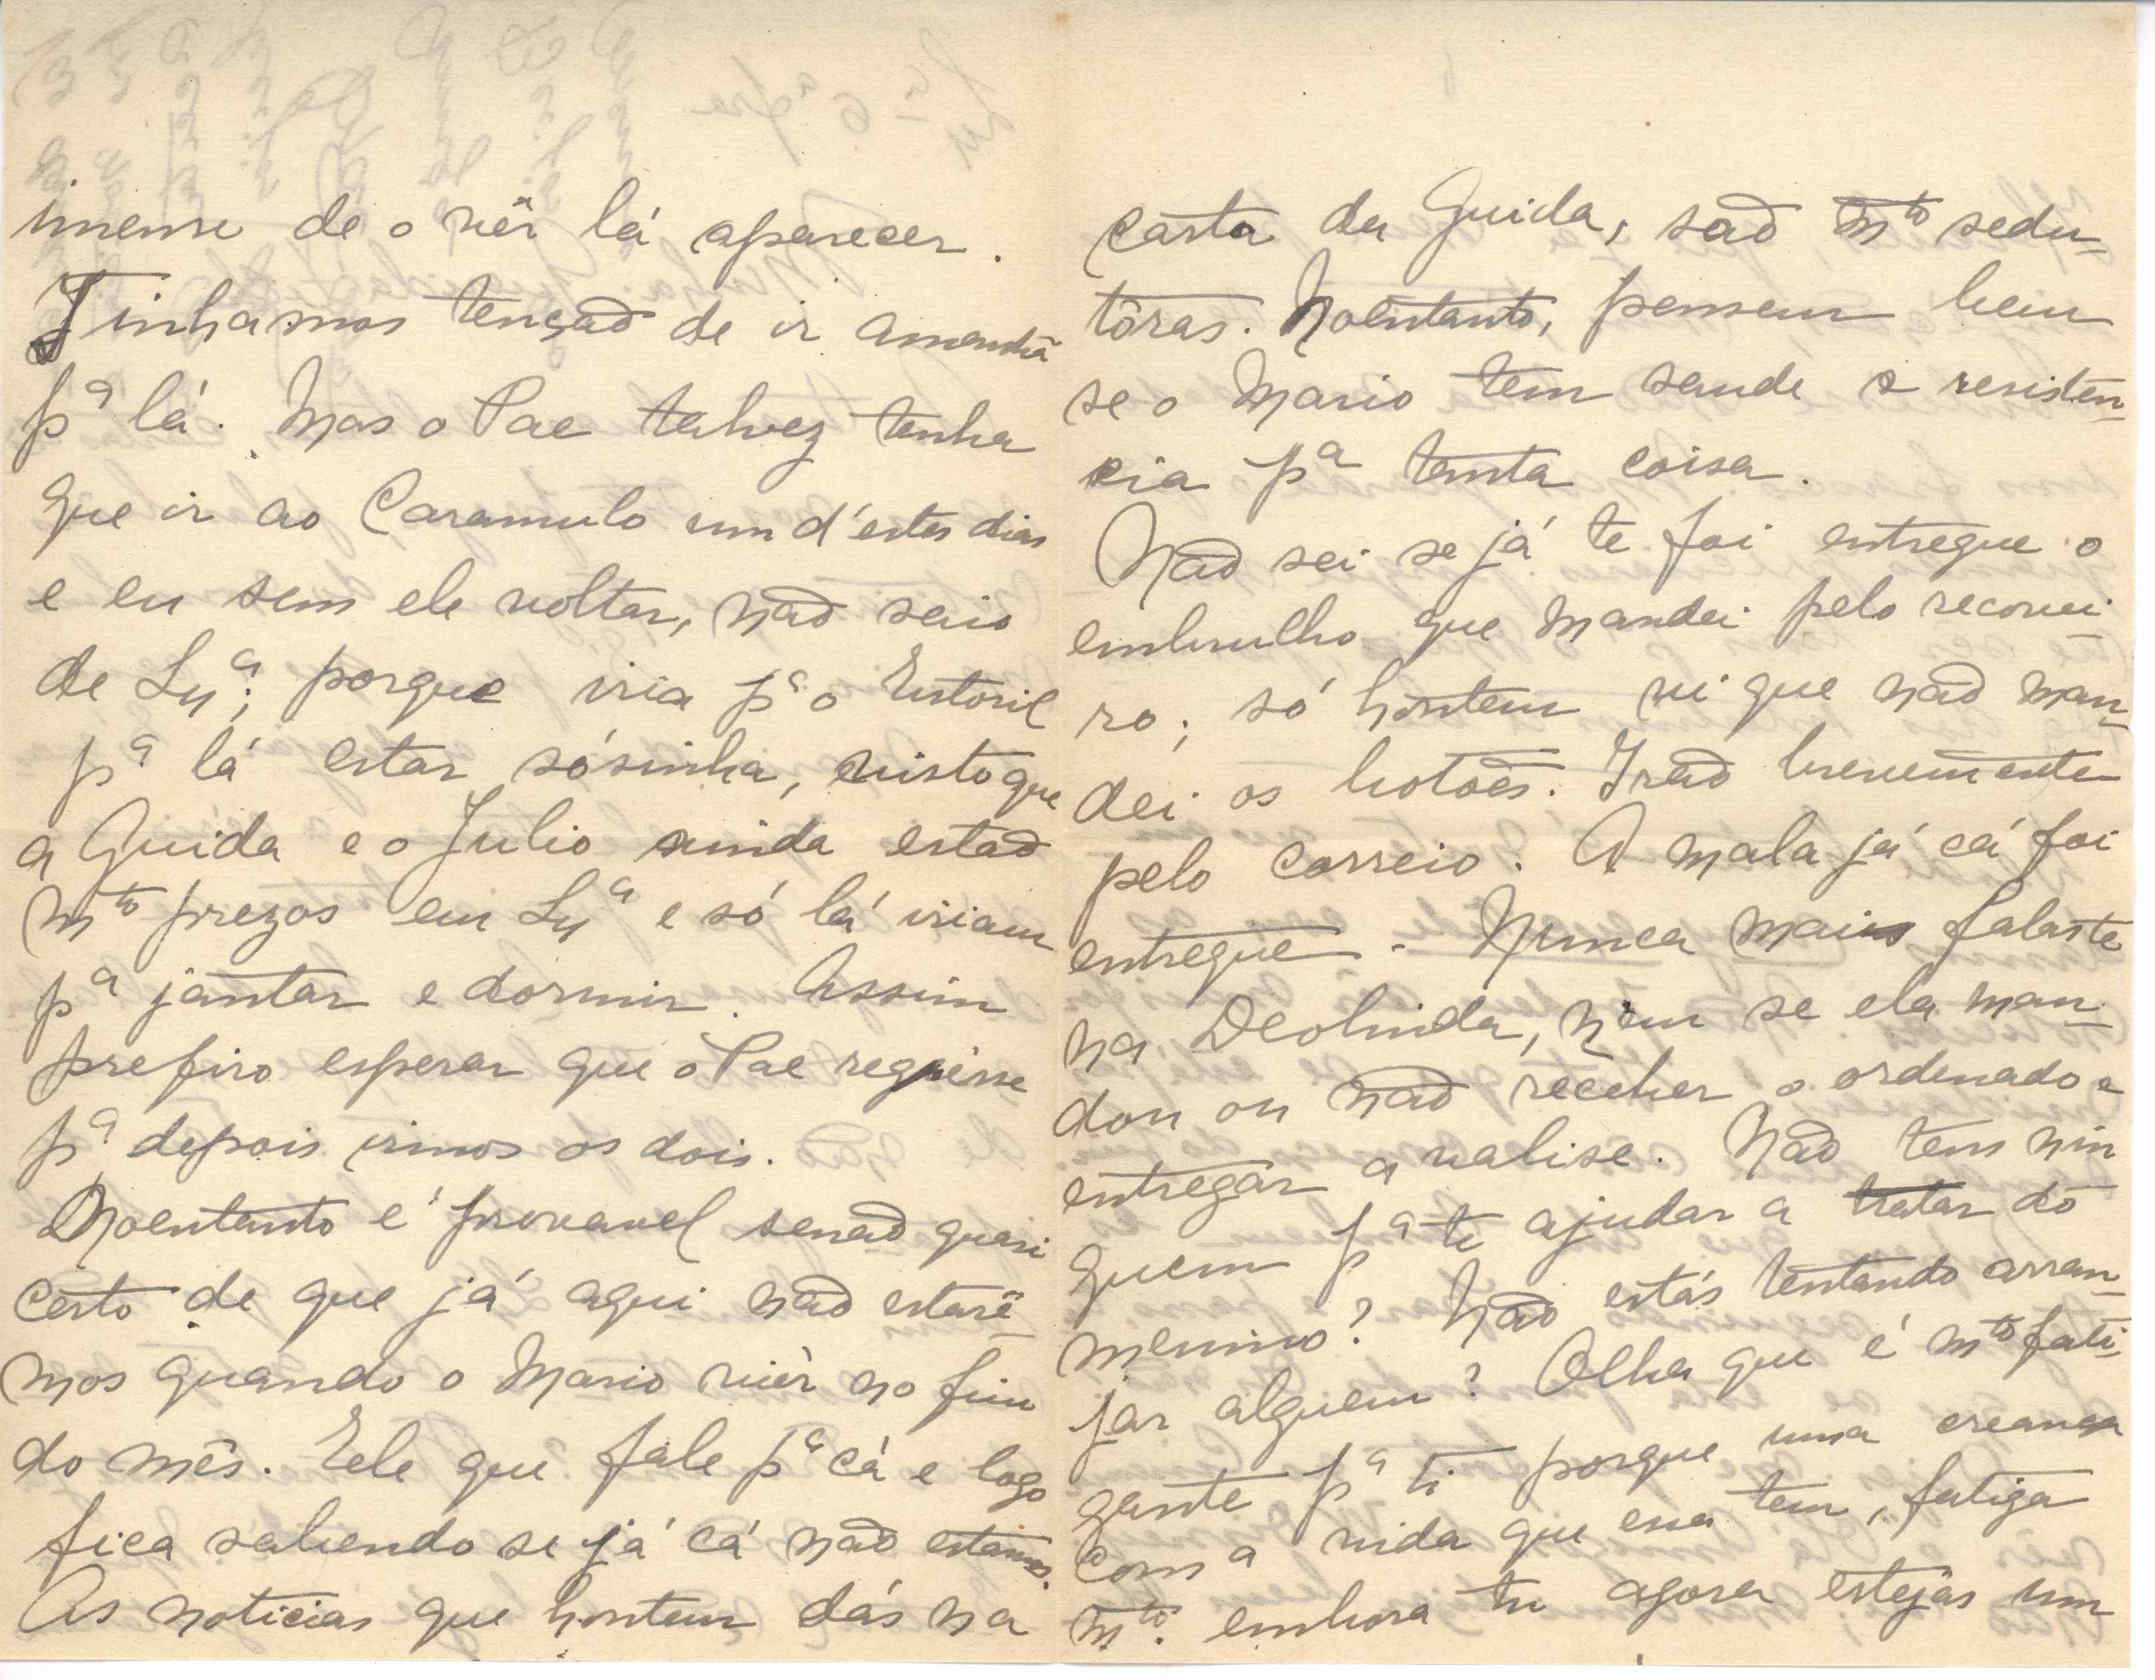 imenso de o vêr lá aparecer.
Tinhamos tenção de ir amanhã
pª lá. Mas o Pae talvez tenha
que ir ao Caramulo um d'estes dias
e eu sem ele voltar, não saio
de Lxª; porque iria pª o Estoril
pª lá estar sósinha, visto que
a Guida e o Julio ainda estão
mto prezos em Lxª e só lá iriam
pª jantar e dormir. Assim
prefiro esperar que o Pae regresse
pª depois irmos os dois.
Noentanto é provavel senão quasi
certo de que já aqui não estarê-
mos quando o Mario viér no fim
do mês. Ele que fale pª cá e logo
fica sabendo se já cá não estamos.
As noticias que hontem dás na
carta da Guida, são mto sedu-
tôras. Noentanto, pensem bem
se o Mario tem saude e resisten-
cia pª tanta coisa.
Não sei se já te foi entregue o
embrulho que mandei pelo recovei-
ro; só hontem vi que não man-
dei os botões. Irão brevemente
pelo correio. A mala já cá foi
entregue. Nunca mais falaste
na Deolinda, nem se ela man-
dou ou não receber o ordenado e
entregar a valise. Não tens nin
guem pª te ajudar a tratar do
menino? Não estás tentando arran-
jar alguem? Olha que é mto fati-
gante pª ti porque uma creança
com a vida que essa tem, fatiga
mto. embora tu agora estejas um